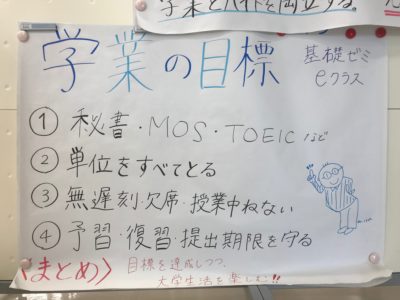 学業とバイトを両立する。
学業の目標
基礎ゼミ
eクラス
① 秘書・MOS・TOEIC など
② 単位をすべてとる
③ 無遅刻・欠席・授業中ねない
④ 予習・復習・提出期限を守る
〈まとめ〉 目標を達成しつつ、
大学生活を楽しむ!!